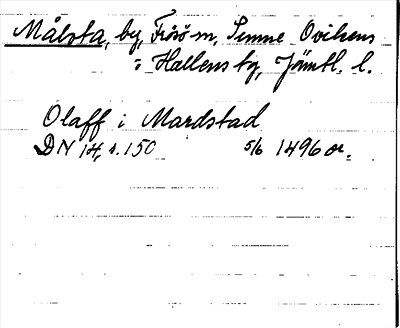 Målsta, by, Frösö sn, Sunne Ovikens
o Hallens tg, Jämtl. l.
Olaff i Mardstad
DN 14, s. 150 5/6 1496 or.